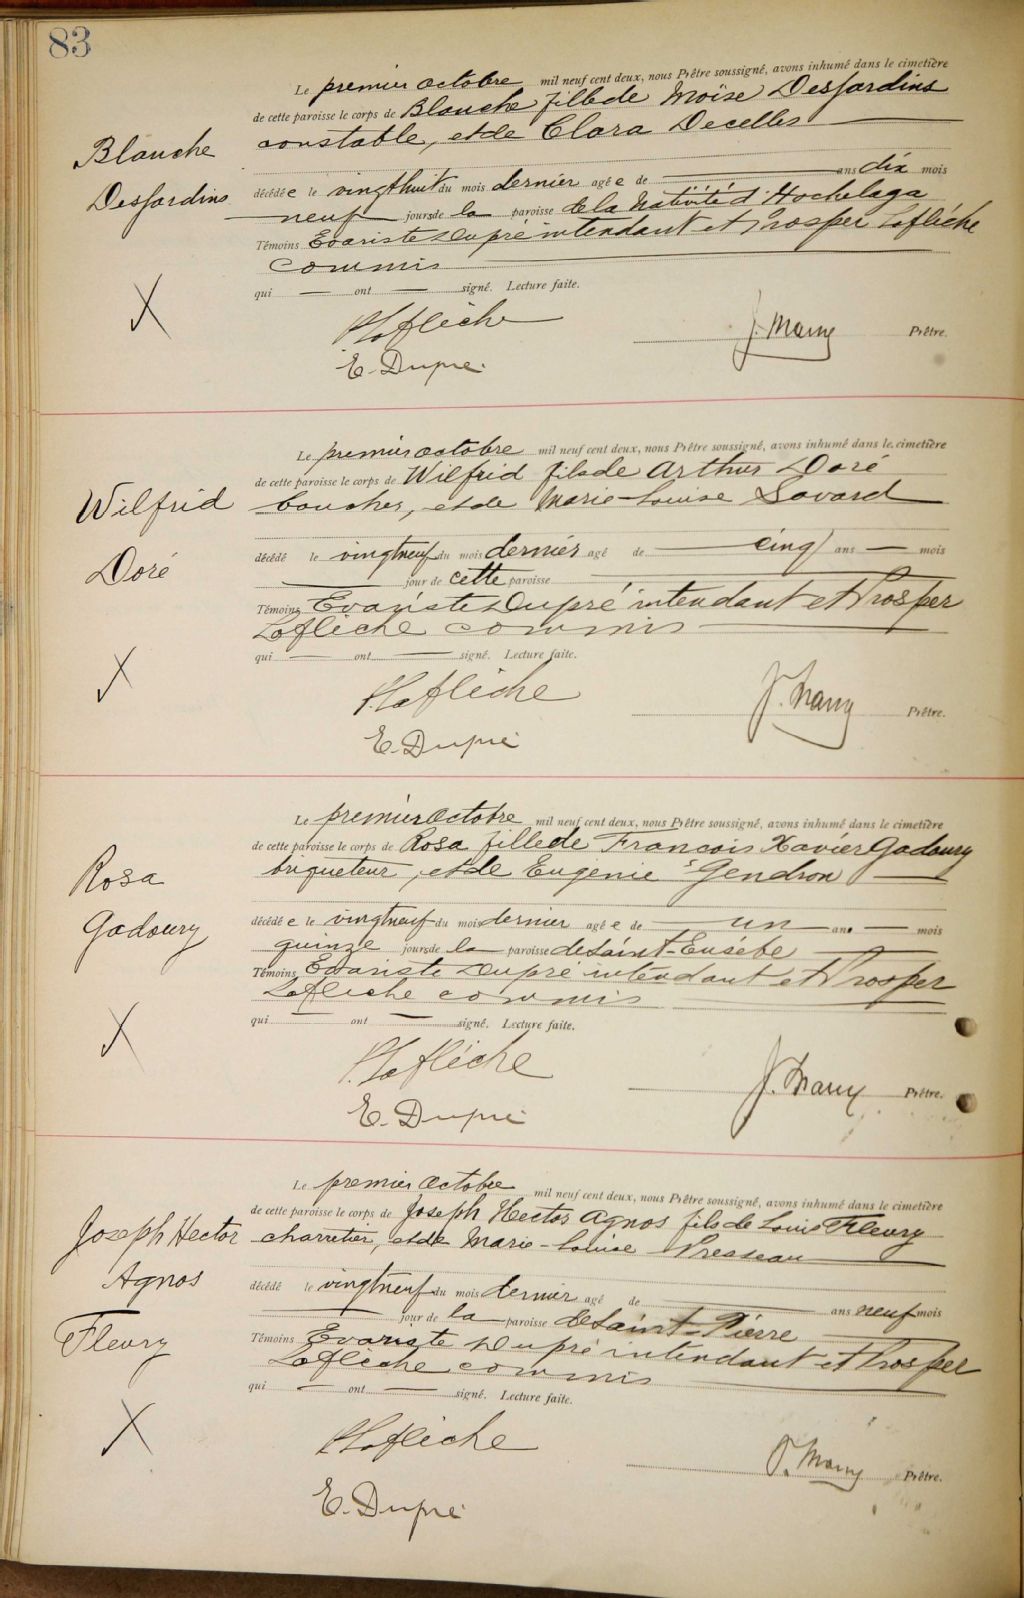 83
Le premier octobre mil neuf cent deux, nous Prêtre soussigné, avons inhumé dans le cimetière
de cette paroisse le corps de Blanche fille de Moïse Desjardins
constable, et de Clara Decelles
Blanche
Desjardins
décédée le vingthuit du mois dernier agée de ans dix mois
neuf jours de la paroisse de la Nativité d'Hochelaga
Témoins Evariste Dupré intendant et Prosper Laflèche
commis
qui ont signé. Lecture faite.
P. Laflèche
J. Marry Prêtre.
E. Dupré
Le premier octobre mil neuf cent deux, nous Prêtre soussigné, avons inhumé dans le cimetière
de cette paroisse le corps de Wilfrid fils de Arthur Doré
boucher, et de Marie-Louise Savard
Wilfrid
Doré
décédé le vingtneuf du mois dernier agé de cinq ans mois
jour de cette paroisse
Témoins Evariste Dupré intendant et Prosper
Laflèche commis
qui ont signé. Lecture faite.
P. Laflèche
J. Marry Prêtre.
E. Dupré
Le premier octobre mil neuf cent deux, nous Prêtre soussigné, avons inhumé dans le cimetière
de cette paroisse le corps de Rosa fille de François Xavier Gadoury
briqueteur, et de Eugénie Gendron
Rosa
Gadoury
décédée le vingtneuf du mois dernier agée de un an. mois
quinze jours de la paroisse de Saint-Eusèbe
Témoins Evariste Dupré intendant et Prosper
Laflèche commis
qui ont signé. Lecture faite.
P. Laflèche
J. Marry Prêtre.
E. Dupré
Le premier octobre mil neuf cent deux, nous Prêtre soussigné, avons inhumé dans le cimetière
de cette paroisse le corps de Joseph Hector Agnos fils de Louis Fleury
charretier, et de Marie-Louise Presseau
Joseph Hector
Agnos
Fleury
décédé le vingtneuf du mois dernier agé de ans neuf mois
jour de la paroisse de Saint-Pierre
Témoins Evariste Dupré intendant et Prosper
Laflèche commis
qui ont signé. Lecture faite.
P. Laflèche
J. Marry Prêtre.
E. Dupré